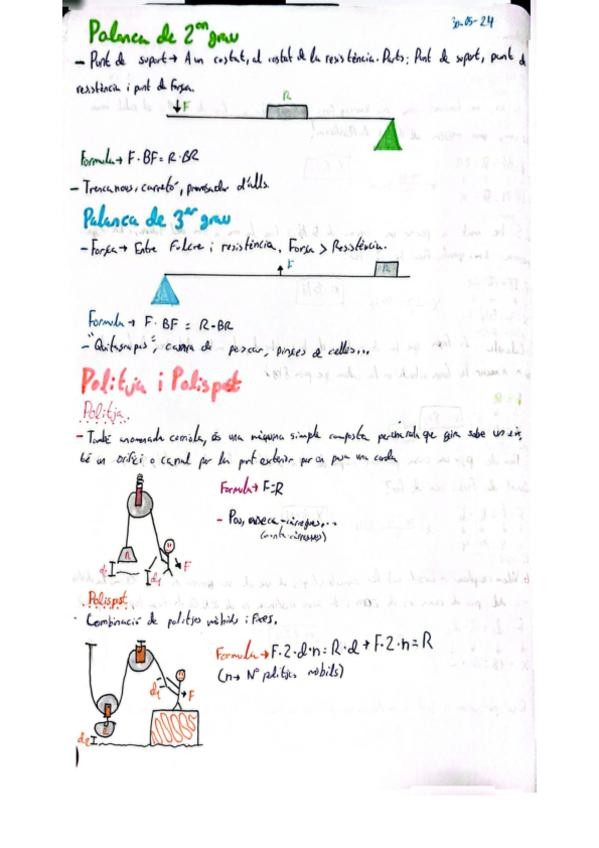 30-05-24
Palanca de 2on grau
- Punt de suport → A un costat, al costat de la resistència. Parts: Punt de suport, punt de
resistència i punt de força.
F
R
Formula → F·BF = R·BR
- Trencanous, carretó, premsador d'alls.
Palanca de 3er grau
- Força → Entre Fulcre i resistència, Força > Resistència.
F
R
Formula → F·BF = R·BR
- "Quitagrapas", canya de pescar, pinces de celles...
Politja i Polispst
Politja.
- També anomenada corriola, és una màquina simple composta per una roda que gira sobre un eix,
té un orifici o canal per la part exterior per on passa una corda
Formula → F=R
- Pou,
R
d2
d1
F
Polispst.
· Combinació de politjes mòbils i fixes.
Formula → F·2·d·n = R·d → F·2·n = R
(n → Nº politjes mòbils)
d1
F
R
d2